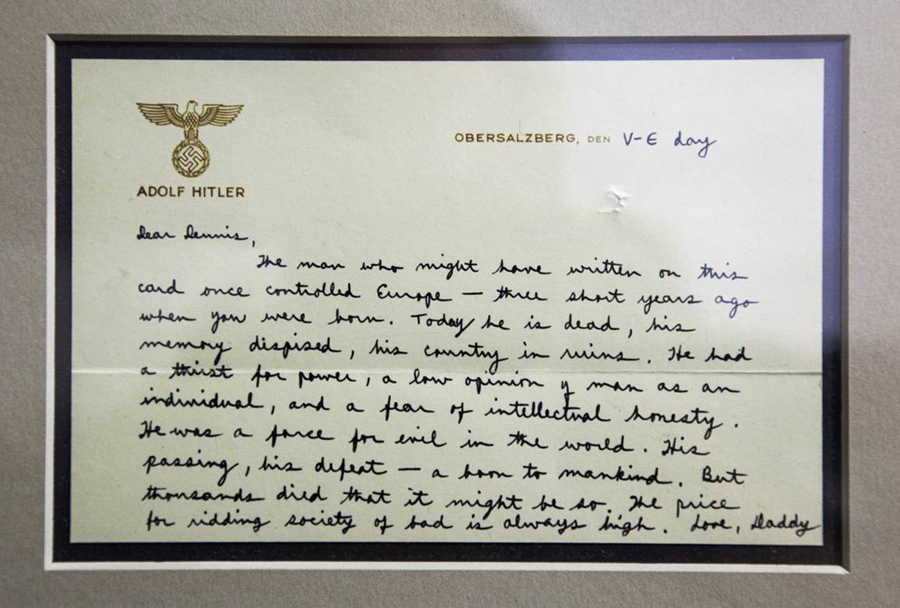 OBERSALZBERG, DEN V-E day
ADOLF HITLER
Dear Dennis,
The man who might have written on this
card once controlled Europe — three short years ago
when you were born. Today he is dead, his
memory dispised, his country in ruins. He had
a thirst for power, a low opinion of man as an
individual, and a fear of intellectual honesty.
He was a force for evil in the world. His
passing, his defeat — a boon to mankind. But
thousands died that it might be so. The price
for ridding society of bad is always high. Love, Daddy